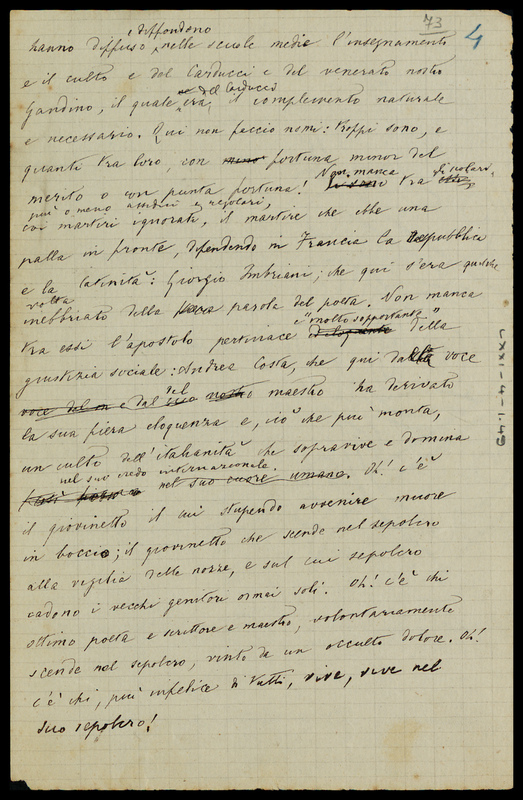 73
4
diffondono
hanno diffuso nelle scuole medie l'insegnamento
e il culto e del Carducci e del venerato nostro
del Carducci
Gandino, il quale era il complemento naturale
e necessario. Qui non faccio nomi: troppi sono, e
quanti tra loro, con meno fortuna minor del
merito o con punta fortuna! Non manca tra
più o meno assidui e regolari,
coi martiri ignorati, il martire che ebbe una
palla in fronte, difendendo in Francia la Repubblica
e la latinità: Giorgio Imbriani; che qui s'era qualche
volta
inebbriato della parola del poeta. Non manca
"molto sopportanta"
tra essi l'apostolo pertinace ed eloquente della
giustizia sociale: Andrea Costa, che qui dalla voce
del
voce del m e dal suo nostro maestro ha derivato
la sua fiera eloquenza e, ciò che più monta,
un culto dell'italianità che sopravive e domina
nel suo credo internazionale.
nel suo cuore umano. Oh! c'è
il giovinetto il cui stupendo avvenire muore
in boccio; il giovinetto che scende nel sepolcro
alla vigilia delle nozze, e sul cui sepolcro
cadono i vecchi genitori ormai soli. Oh! c'è chi
ottimo poeta e scrittore e maestro, volontariamente
scende nel sepolcro, vinto da un occulto dolore. Oh!
c'è chi, più infelice di tutti, vive, vive nel
suo sepolcro!
LXXI-4-1.49